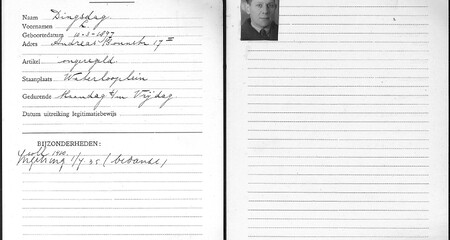 Naam Dingsdag
Voornamen L.
Geboortedatum 11-3-1897
Adres Andreas Bonnstr 17 II
Artikel ongeregeld
Staanplaats Waterlooplein
Gedurende Maandag t/m Vrijdag
Datum uitreiking legitimatiebewijs
BIJZONDERHEDEN:
1/4 35 (bedankt)